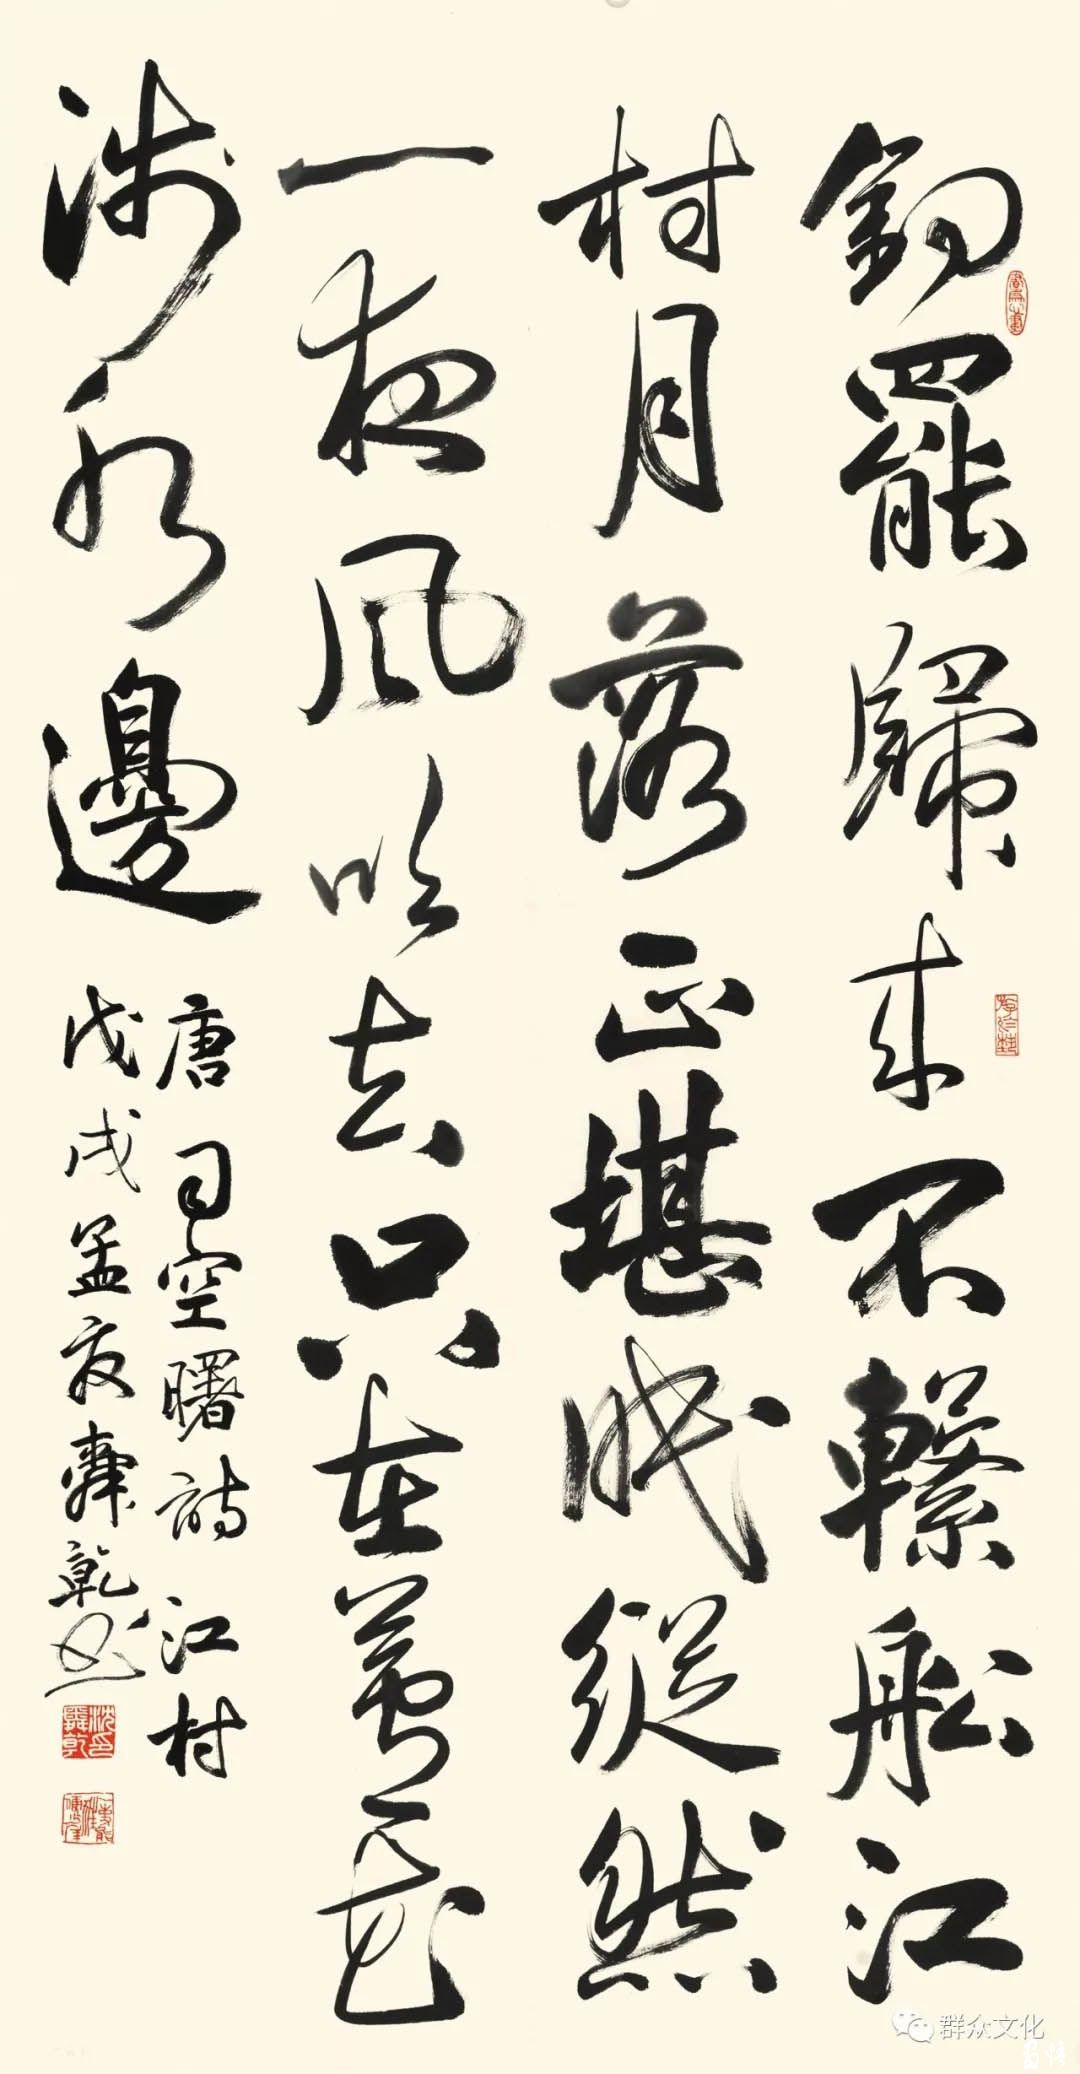 釣罷歸來不繫船江
村月落正堪眠縱然
一夜風吹去只在蘆花
淺水邊
唐司空曙詩江村
戊戌孟夏乾书
群众文化